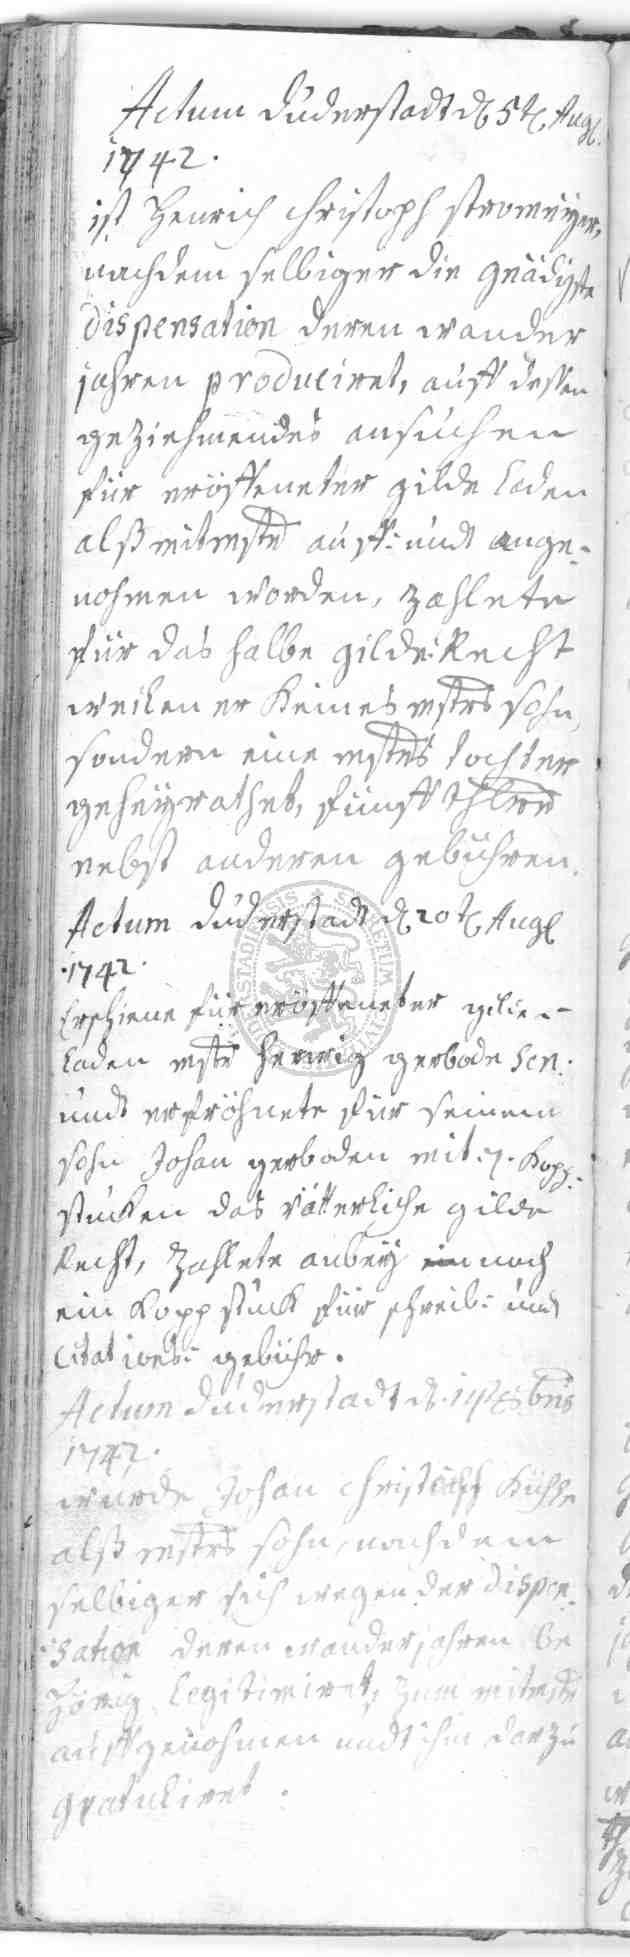 Actum Duderstadt d 5t Aug.
1742.
ist Henrich Christoph Stromeÿer,
nachdem selbiger die gnädigste
dispensation deren wander
jahren produciret, auff dessen
geziehmendes ansuchen
für eröffeneter gilde laden
alß mitmstr auff- undt ange-
nohmen worden, zahlete
für das halbe gilde Recht
weilen er Keines mstrs sohn,
sondern eine mstrs tochter
geheÿrathet, fünff thlr
nebst anderen gebühren.
Actum Duderstadt d 20t Aug
1742.
Erschiene für eröffeneter gilde-
laden mstr Henrig gerbode sen:
undt erfröhnete für seinem
sohn Johan gerboden mit 7. Kopp-
stücken das vätterliche gilde
Recht, Zahlete anbeÿ noch
ein Kopp stück für schreib- undt
Citations- gebühr.
Actum Duderstadt d. 8bris
1742.
wurde Johan Christoph
alß mstrs sohn, nachdem
selbiger sich wegen der dispen-
sation deren wander jahren be
hörig legitimiret, zum mitmstr
auffgenohmen undt ihm darzu
gratuliret.